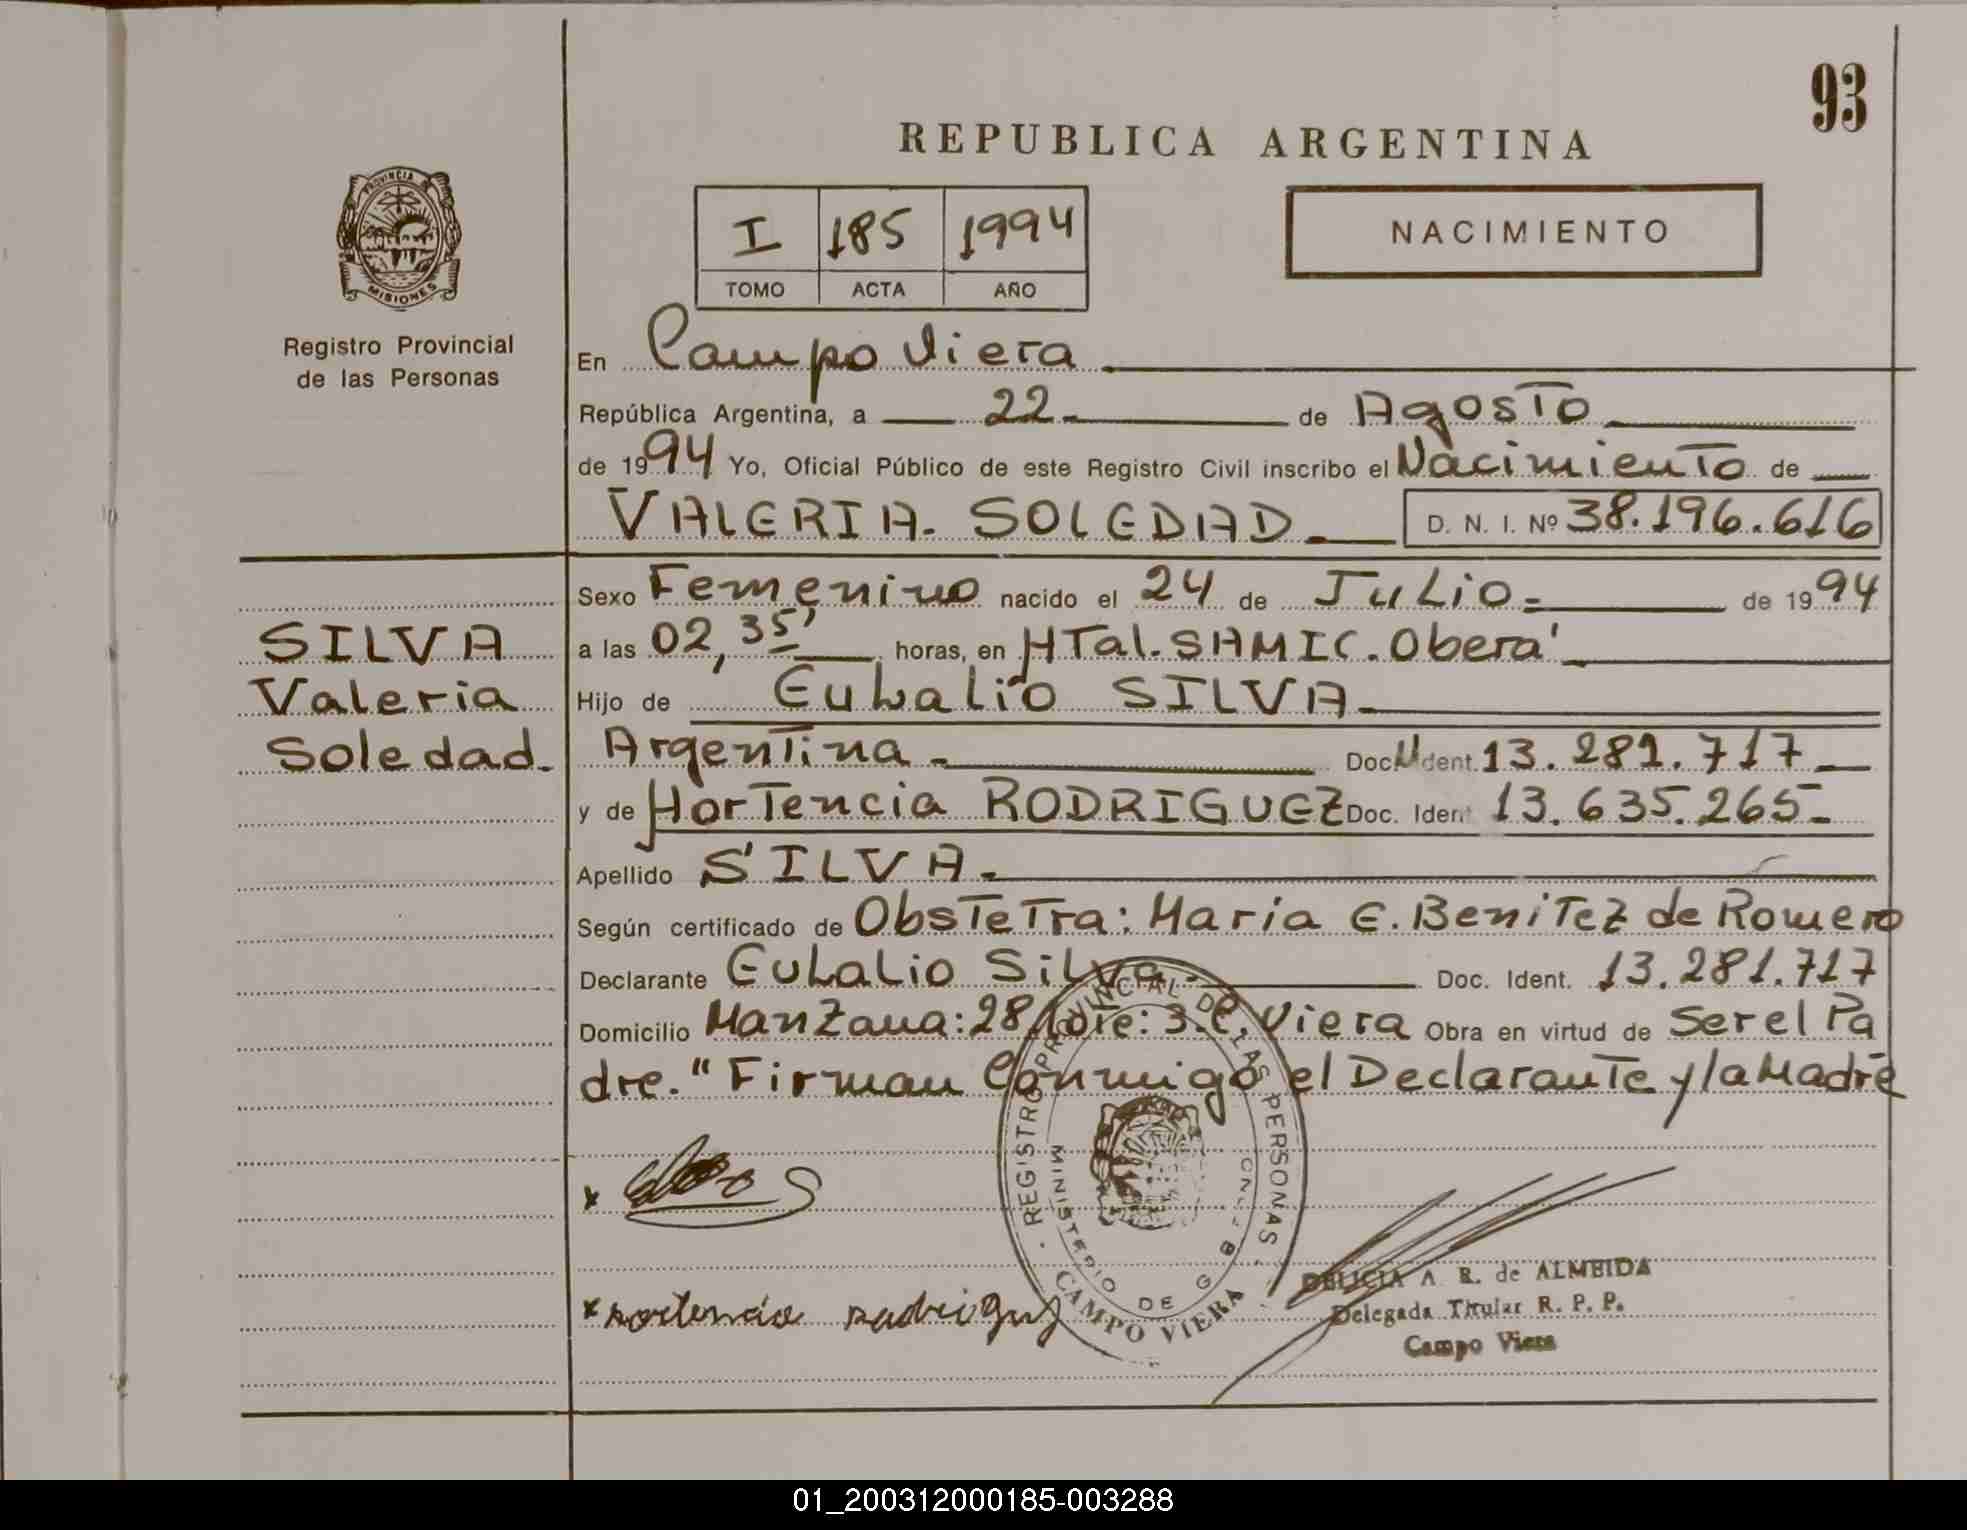 93
REPUBLICA ARGENTINA
I 185 1994
TOMO ACTA AÑO
NACIMIENTO
PROVINCIA DE
MISIONES
Registro Provincial
de las Personas
En Campo Viera
República Argentina, a 22 de Agosto
de 1994 Yo, Oficial Público de este Registro Civil inscribo el Nacimiento de
VALERIA SOLEDAD D. N. I. Nº 38.196.616
SILVA
Valeria
Soledad.
Sexo Femenino nacido el 24 de Julio de 1994
a las 02,35' horas, en HTal. SAMIC. Oberá
Hijo de Eulalio SILVA
Argentina Doc. Ident. 13.281.717
y de Hortencia RODRIGUEZ Doc. Ident 13.635.265
Apellido SILVA
Según certificado de Obstetra: Maria E. Benitez de Romero
Declarante Eulalio Silva Doc. Ident. 13.281.717
Domicilio Manzana: 28 Lote: 3. C. Viera Obra en virtud de Ser el Pa
dre." Firman Conmigo el Declarante y la Madre
REGISTRO PROVINCIAL DE LAS PERSONAS
MINISTERIO DE G
CAMPO VIERA
x
x Hortencia Rodriguez
DELICIA A. R. de ALMEIDA
Delegada Titular R. P. P.
Campo Viera
01_200312000185-003288